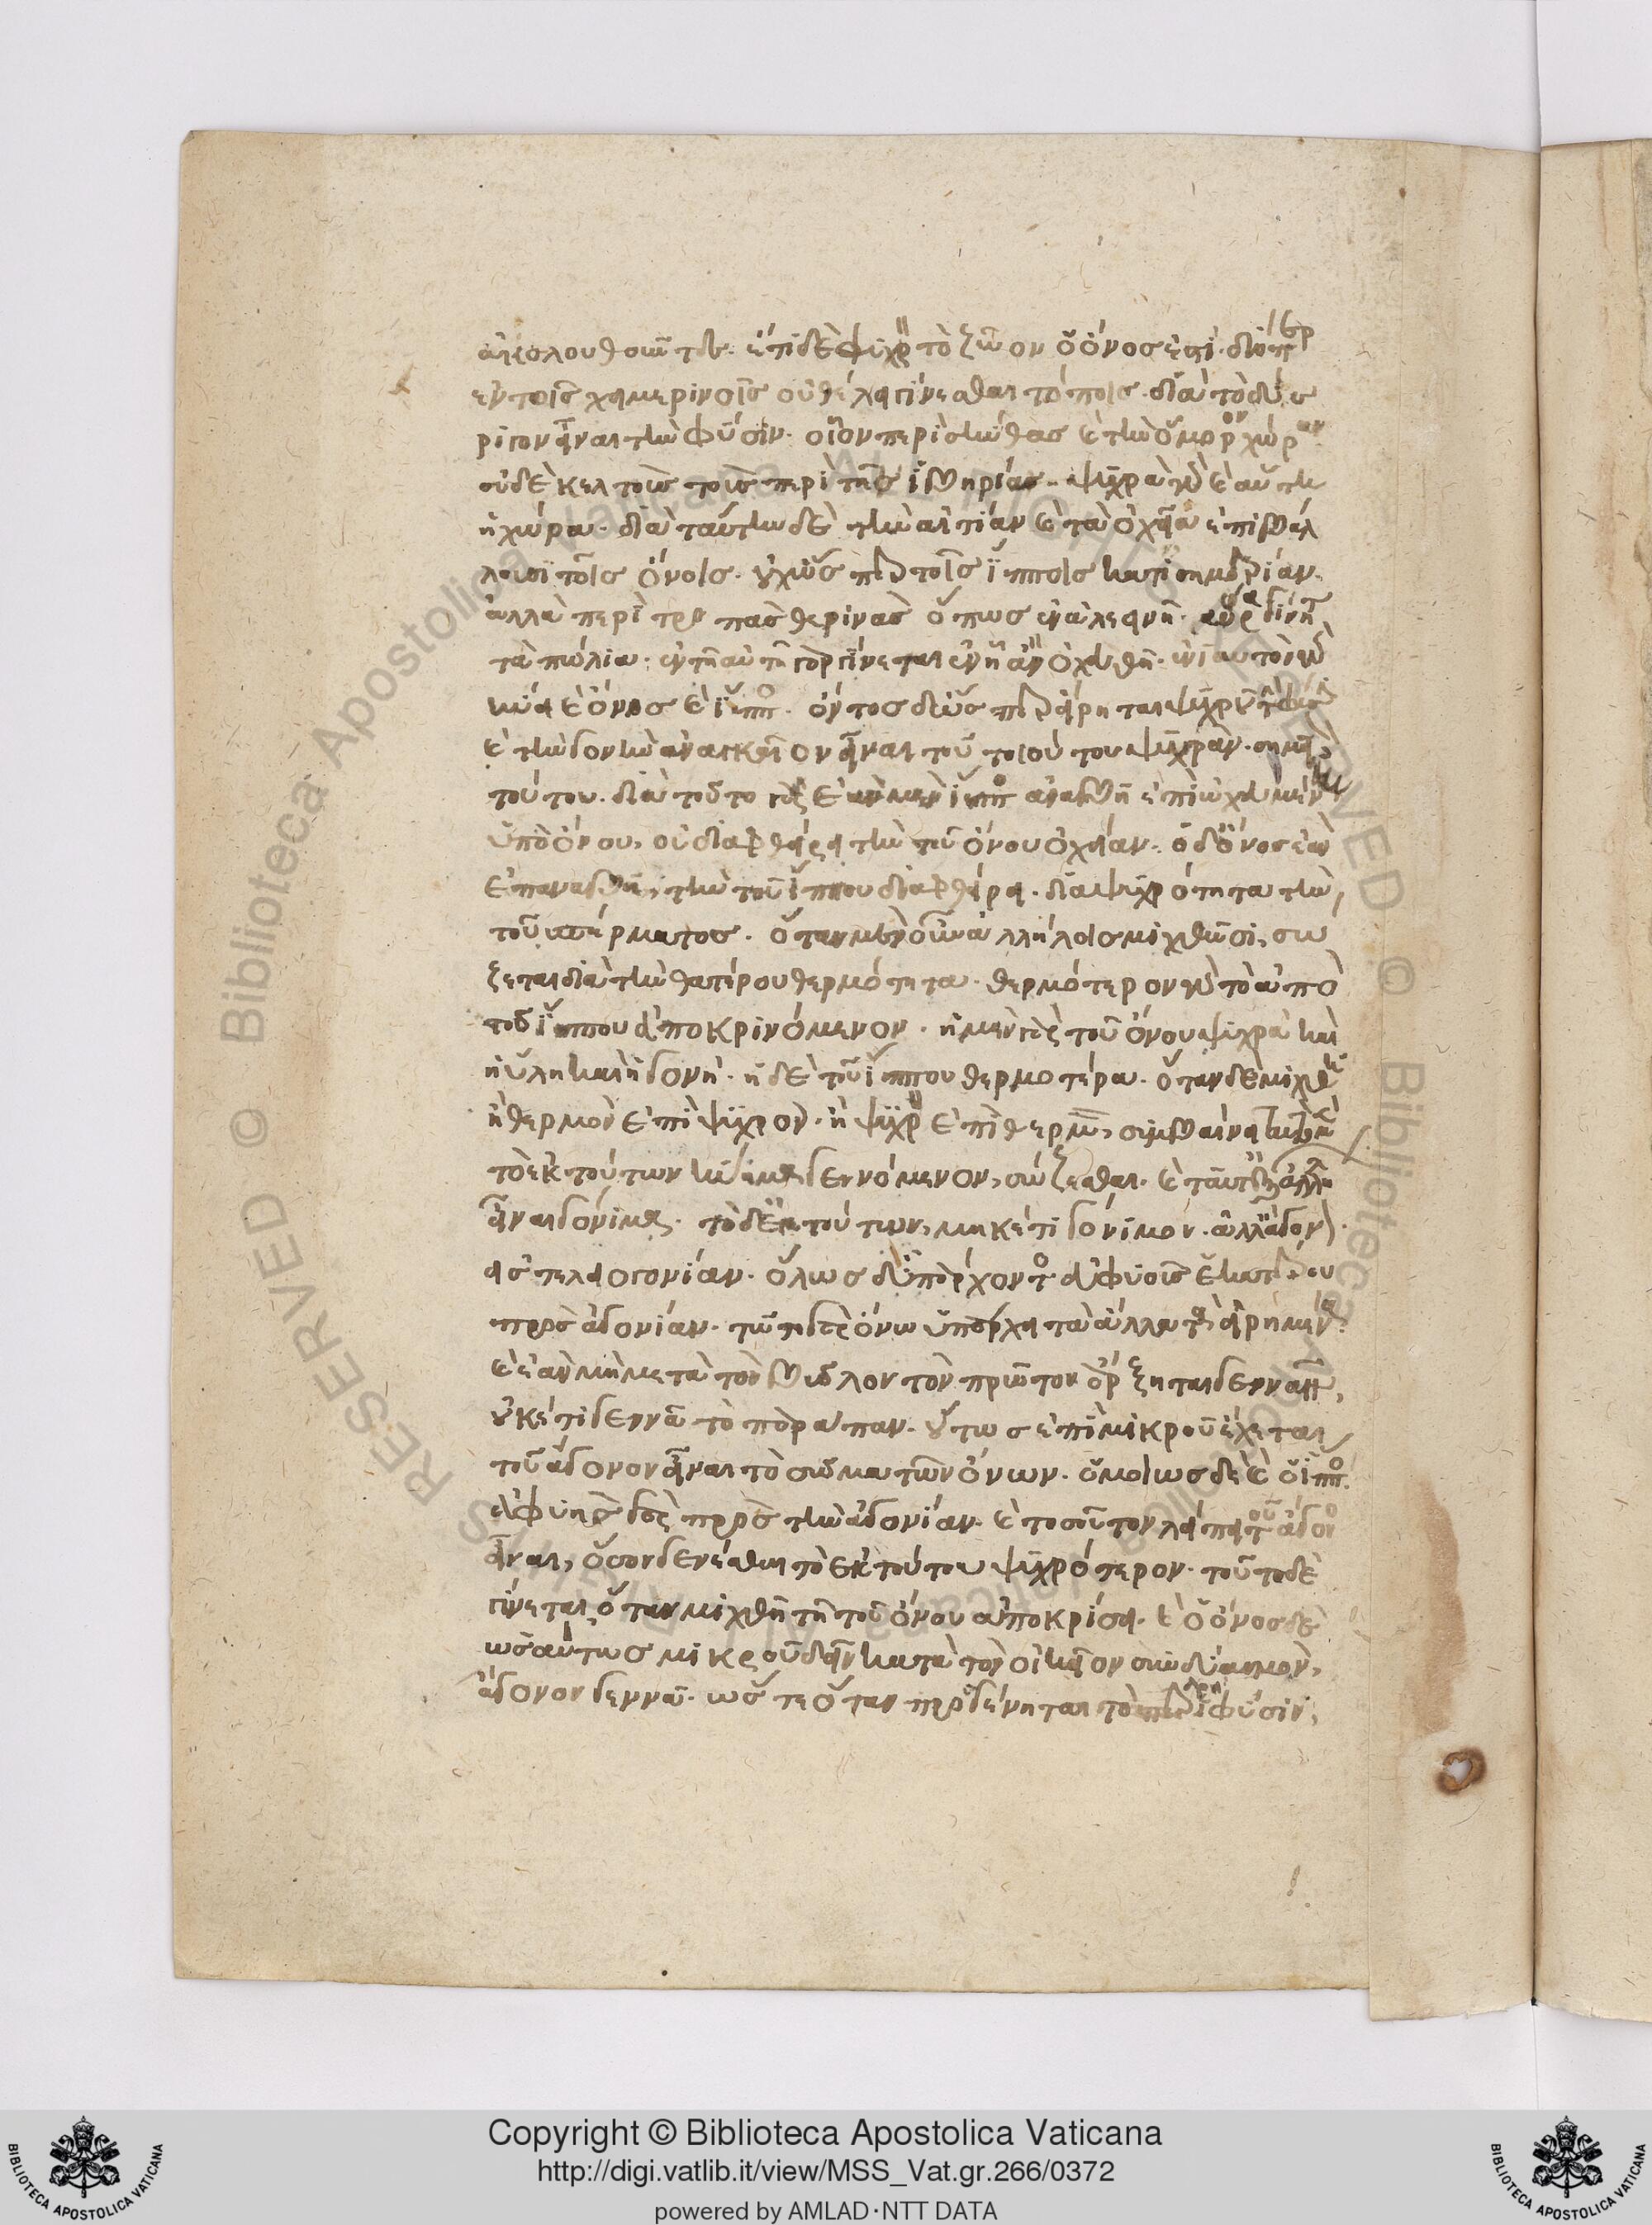 ἀκολουθούντων. ἔτι δὲ ψυχρὸν τὸ ζῷον ὁ ὄνος ἐστί. διόπερ
ἐν τοῖς χειμερινοῖς οὐ θέλει γίνεσθαι τόποις. διὰ τὸ δύσ
ριγον εἶναι τὴν φύσιν. οἷον περὶ σκύθας καὶ τὴν ὅμορον χώραν.
οὐδὲ κελτοὺς τοὺς περὶ τῆς ἰβηρίας. ψυχρὰ γὰρ καὶ αὕτη
ἡ χώρα. διὰ ταύτην δὲ τὴν αἰτίαν καὶ τὰ ὀχεῖα ἐπιβάλ
λουσι τοῖς ὄνοις. οὐχ ὥσπερ τοῖς ἵπποις κατ' ἰσημερίαν.
ἀλλὰ περὶ τροπὰς θερινὰς ὅπως ἐν ἀλεεινῇ ὥρᾳ γίνηται
τὰ πωλία. ἐν τῇ αὐτῇ γὰρ γίνεται ἐν ᾗ ἂν ὀχευθῇ. ἐνιαυτὸν γὰρ
κύει καὶ ὄνος καὶ ἵππος. ὄντος δ' ὥσπερ εἴρηται ψυχροῦ τὴν φύσιν
καὶ τὴν γονὴν ἀναγκαῖον εἶναι τοῦ τοιούτου ψυχράν. σημεῖον δὲ
τούτου. διὰ τοῦτο γὰρ ἐὰν μὲν ἵππος ἀναβῇ ἐπὶ ὠχευμένην
ὑπὸ ὄνου, οὐ διαφθείρει τὴν τοῦ ὄνου ὀχείαν. ὁ δ' ὄνος ἐὰν
ἐπαναβῇ, τὴν τοῦ ἵππου διαφθείρει. διὰ ψυχρότητα τὴν
τοῦ σπέρματος. ὅταν μὲν οὖν ἀλλήλοις μιχθῶσι, σώ
ζεται διὰ τὴν θατέρου θερμότητα. θερμότερον γὰρ τὸ ἀπὸ
τοῦ ἵππου ἀποκρινόμενον. ἡ μὲν γὰρ τοῦ ὄνου ψυχρὰ καὶ
ἡ ὕλη καὶ ἡ γονή. ἡ δὲ τοῦ ἵππου θερμοτέρα. ὅταν δὲ μιχθῇ
ἢ θερμὸν ἐπὶ ψυχρὸν. ἢ ψυχρὸν ἐπὶ θερμὸν, συμβαίνει αὐτὸ μὲν
τὸ ἐκ τούτων κύημα γεννόμενον, σώζεσθαι. καὶ ταῦτ' ἐξ ἀλλήλων
εἶναι γόνιμα. τὸ δ' ἐκ τούτων, μηκέτι γόνιμον. ἀλλ' ἄγονον
εἰς τελειογονίαν. ὅλως δ' ὑπάρχοντος εὐφυοῦς ἑκατέρου
πρὸς ἀγονίαν. τῷ τε γὰρ ὄνῳ ὑπάρχει τὰ ἄλλα τὰ εἰρημένα
καὶ ἐὰν μὴ μετὰ τὸν βόλον τὸν πρῶτον ἄρξηται γεννᾶν,
οὐκέτι γεννᾷ τὸ παράπαν. οὕτως ἐπὶ μικροῦ ἔχεται
τοῦ ἄγονον εἶναι τὸ σῶμα τῶν ὄνων. ὁμοίως δὲ καὶ ὁ ἵππος.
εὐφυὴς γὰρ πρὸς τὴν ἀγονίαν. καὶ τοσοῦτον λείπει τοῦ ἄγονον
εἶναι, ὅσον γενέσθαι τὸ ἐκ τούτου ψυχρότερον. τοῦτο δὲ
γίνεται ὅταν μιχθῇ τῇ τοῦ ὄνου ἀποκρίσει. καὶ ὁ ὄνος δὲ
ὡσαύτως μικροῦ δεῖν κατὰ τὸν οἰκεῖον συνδυασμὸν,
ἄγονον γεννᾷ. ὥστε ὅταν προσγένηται τὸ παρὰ φύσιν,